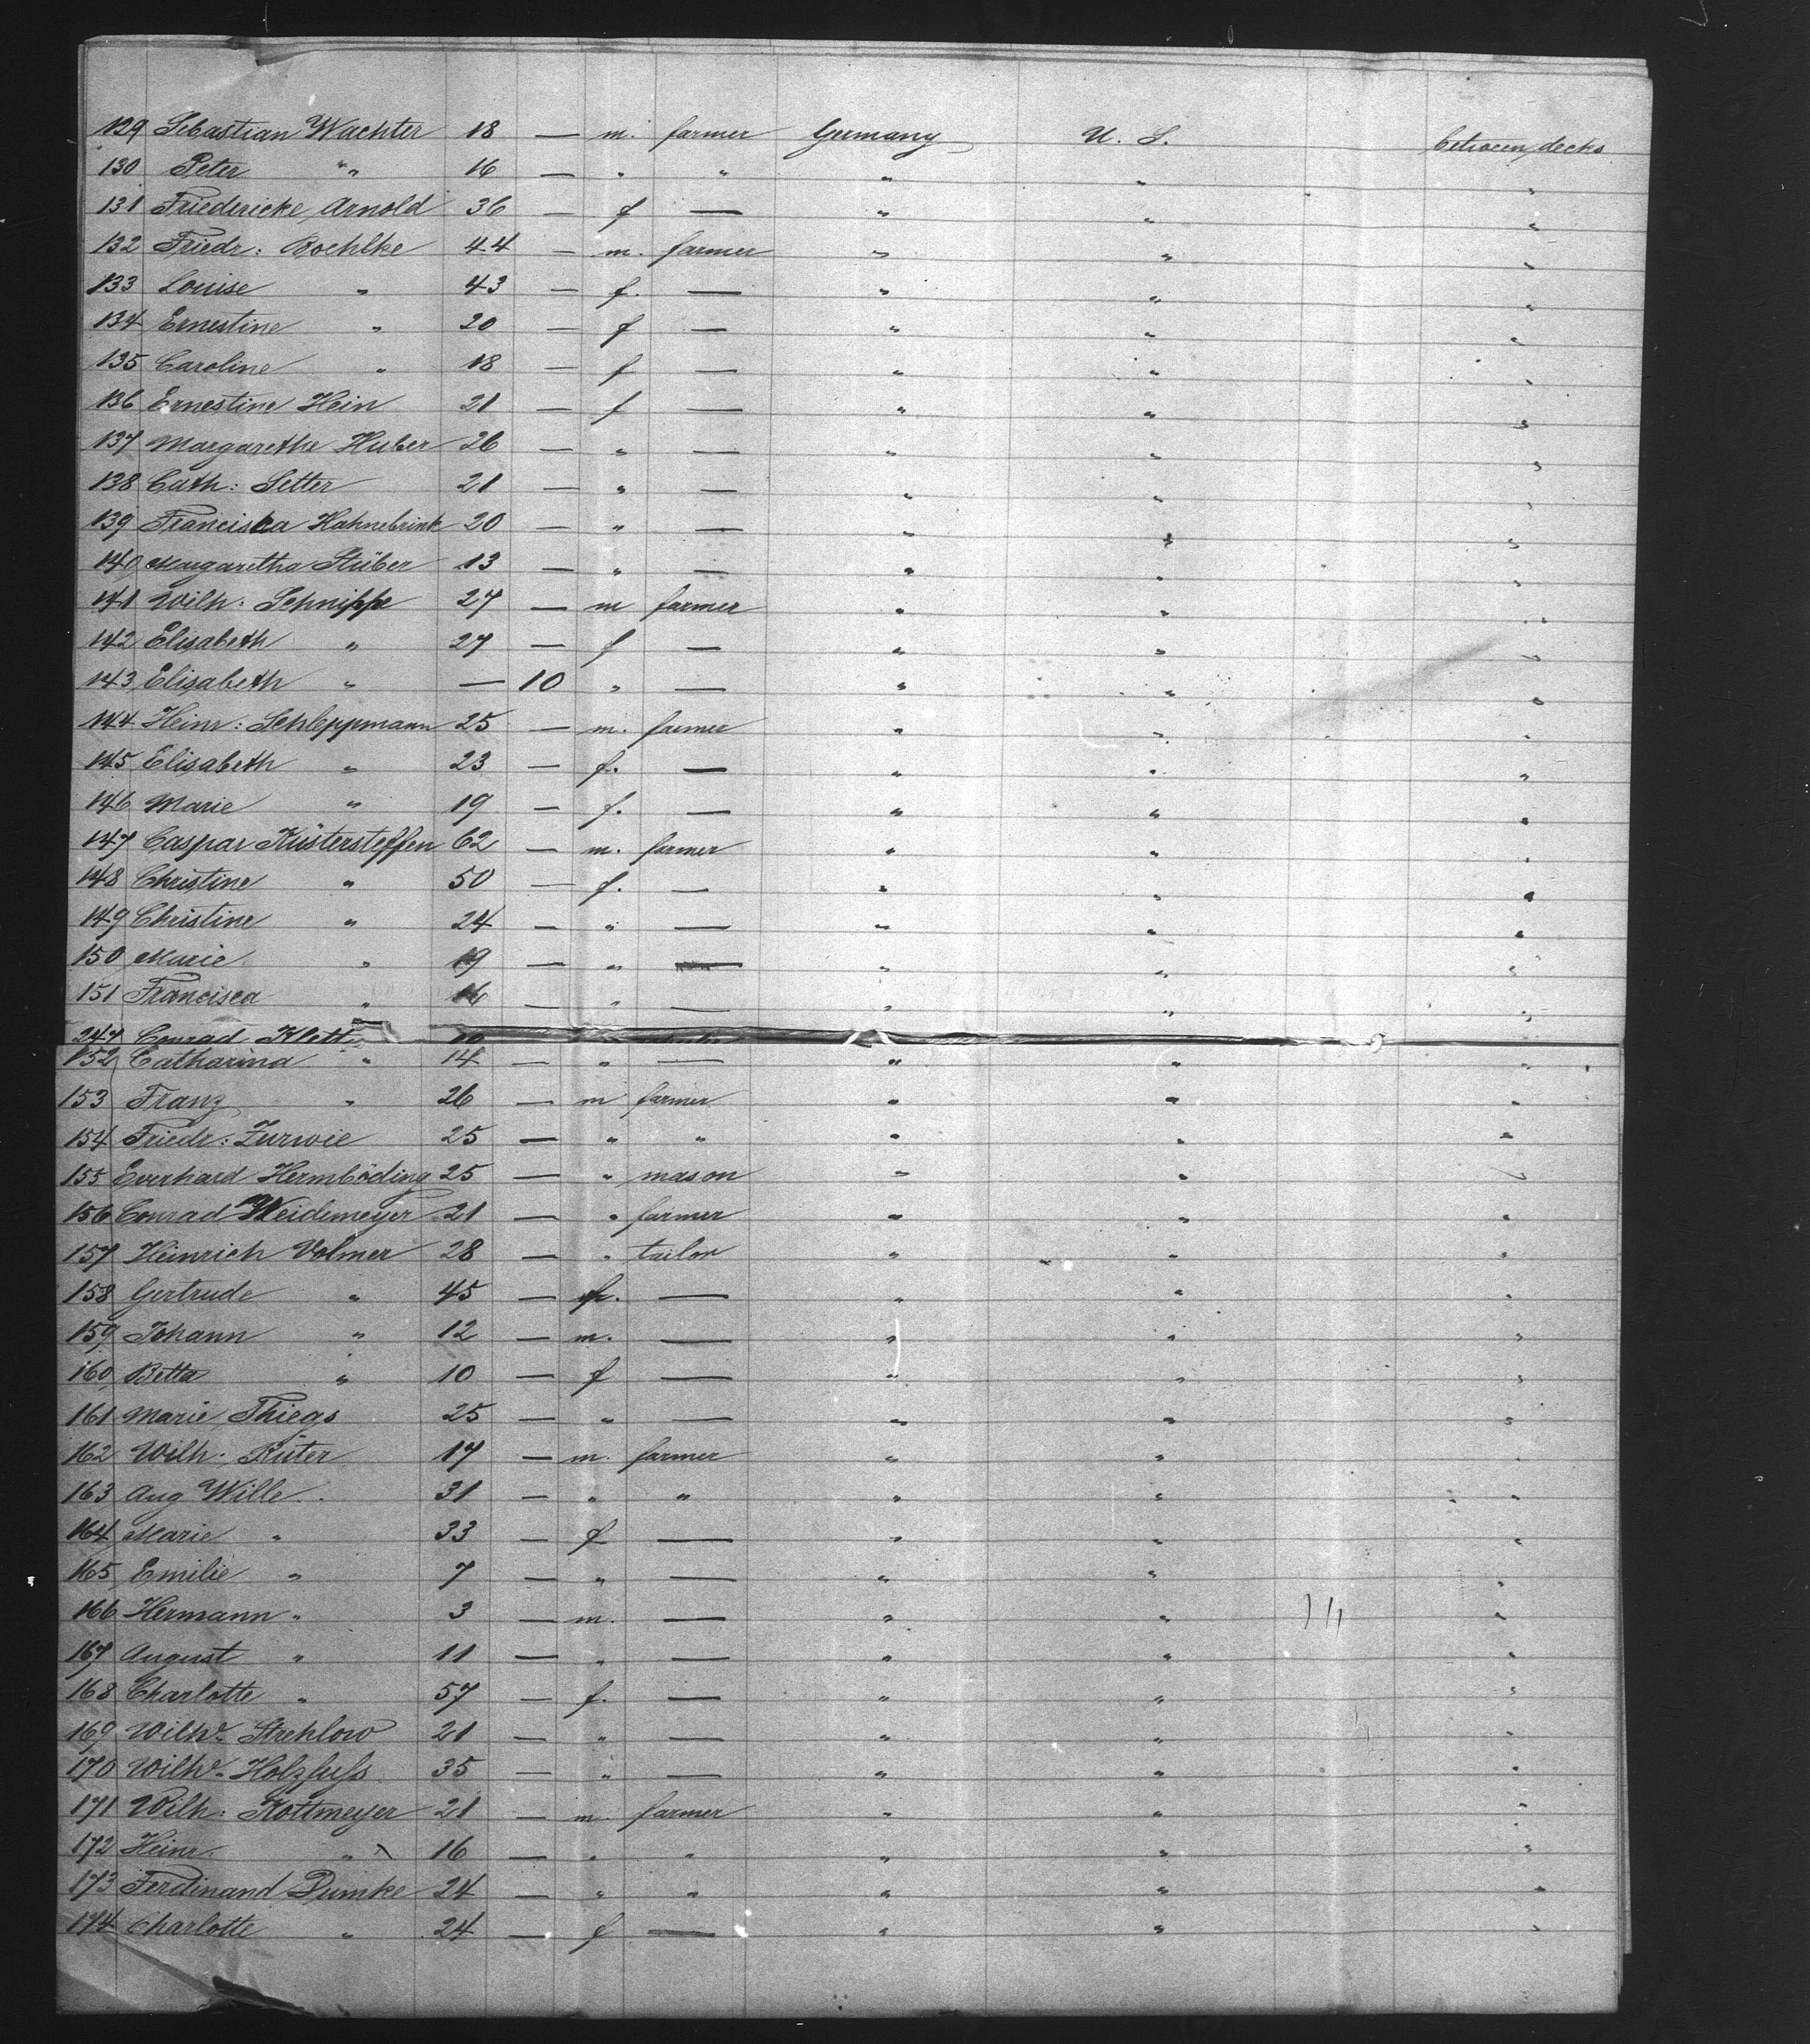 129 Sebastian Wachter 18 — m. farmer Germany U. S. between decks
130 Peter " 16 — " " " " "
131 Friedericke Arnold 36 — f — " " "
132 Friedr: Rochlke 44 — m. farmer " " "
133 Louise " 43 — f. — " " "
134 Ernestine " 20 — f — " " "
135 Caroline " 18 — f — " " "
136 Ernestine Hein 21 — f — " " "
137 Margaretha Huber 26 — " — " " "
138 Cath: Setter 21 — " — " " "
139 Franciska Hahnebrink 20 — " — " " "
140 Margaretha Stüber 13 — " — " " "
141 Wilh: Schnippe 27 — m farmer " " "
142 Elisabeth " 27 — f — " " "
143 Elisabeth " — 10 " — " " "
144 Heinr: Schleppmann 25 — m. farmer " " "
145 Elisabeth " 23 — f. — " " "
146 Marie " 19 — f. — " " "
147 Caspar Küstersteffen 62 — m. farmer " " "
148 Christine " 50 — f. — " " "
149 Christine " 24 — " — " " "
150 Marie " 19 — " — " " "
151 Francisca " 16 — " — " " "
247 Conrad Klett
152 Catharina " 14 — " — " " "
153 Franz " 26 — m farmer " " "
154 Friedr: Zurwie 25 — " " " " "
155 Everhard Hermböding 25 — " mason " " "
156 Conrad Weidemeyer 21 — " farmer " " "
157 Heinrich Volmer 28 — " tailor " " "
158 Gertrude " 45 — f. — " " "
159 Johann " 12 — m. — " " "
160 Betta " 10 — f — " " "
161 Marie Thiegs 25 — " — " " "
162 Wilh: Rüter 17 — m. farmer " " "
163 Aug Wille 31 — " " " " "
164 Marie " 33 — f — " " "
165 Emilie " 7 — " — " " "
166 Hermann " 3 — m. — " " "
167 August " 11 — " — " " "
168 Charlotte " 57 — f. — " " "
169 Wilhe. Strehlow 21 — " — " " "
170 Wilhe. Holzfuss 35 — " — " " "
171 Wilh: Kottmeyer 21 — m. farmer " " "
172 Heinr. " 16 — " " " " "
173 Ferdinand Dumke 24 — " " " " "
174 Charlotte " 24 — f — " " "